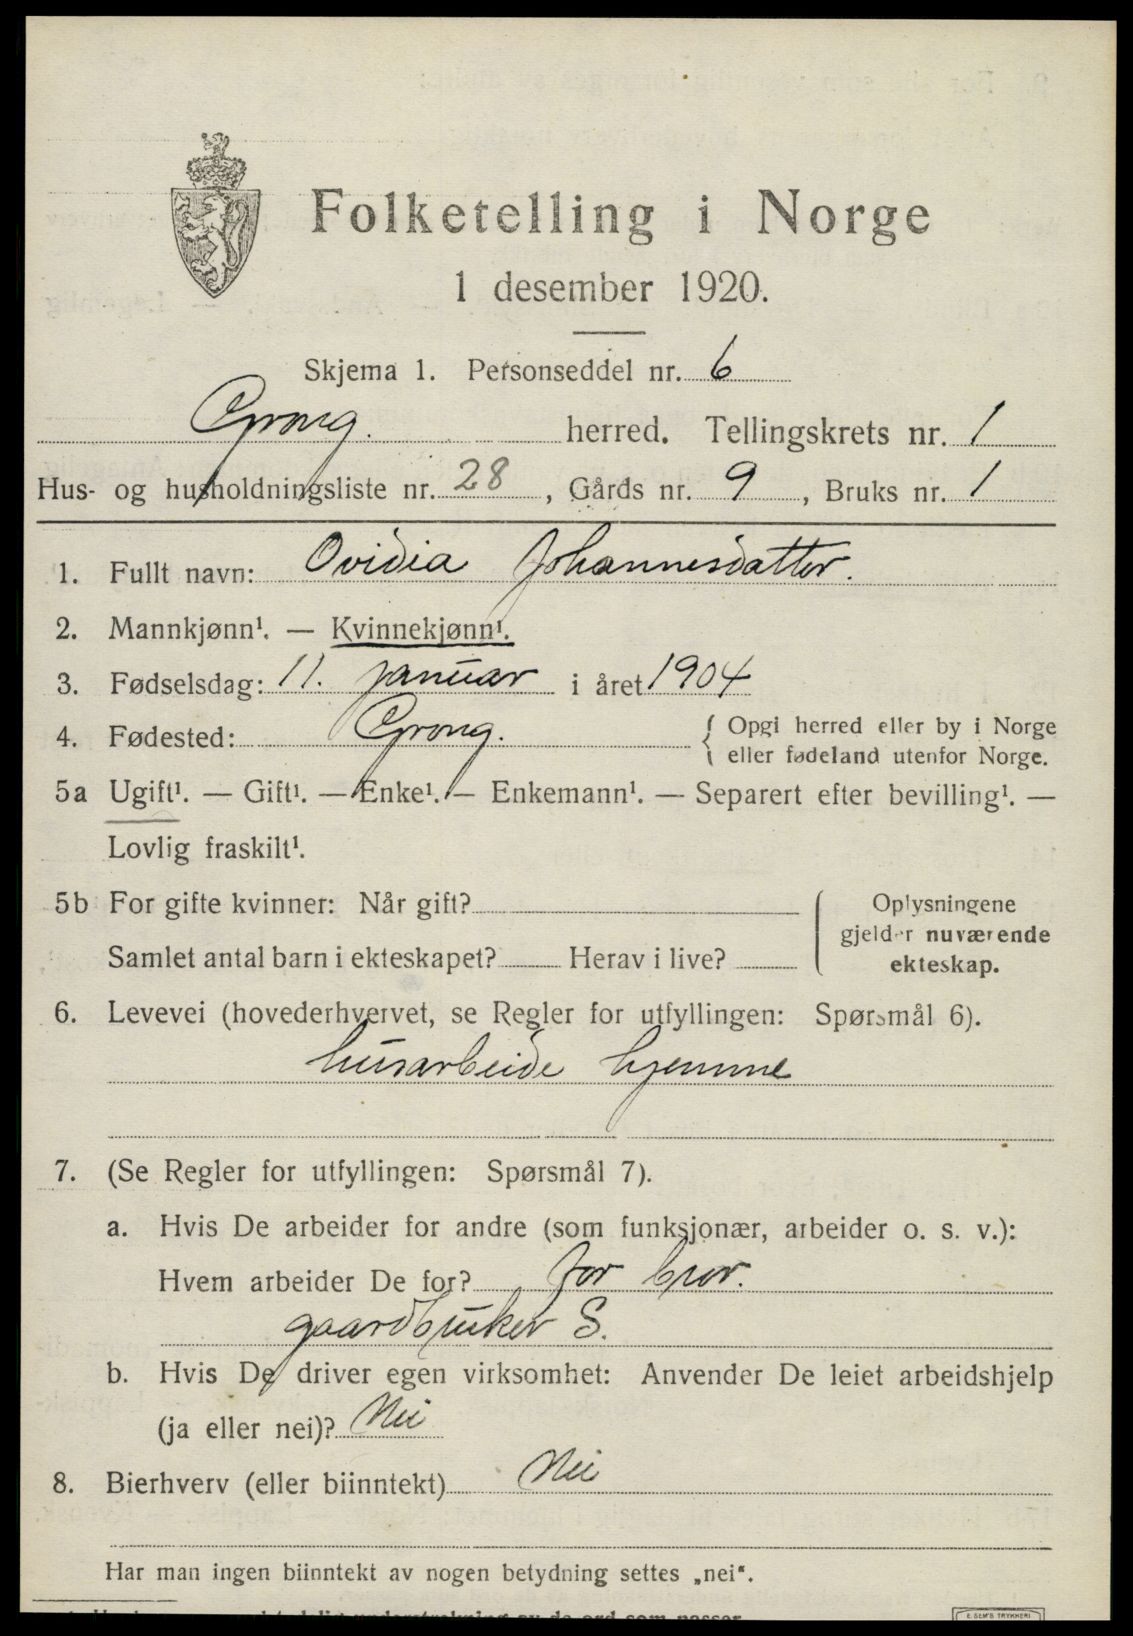 Folketelling i Norge
1 desember 1920.
Skjema 1. Personseddel nr. 6
Grong. herred. Tellingskrets nr. 1
Hus- og husholdningsliste nr. 28, Gårds nr. 9, Bruks nr. 1
1. Fullt navn: Ovidia Johannesdatter.
2. Mannkjønn¹. — Kvinnekjønn¹.
3. Fødselsdag: 11. januar i året 1904
4. Fødested: Grong. { Opgi herred eller by i Norge
eller fødeland utenfor Norge.
5a Ugift¹. — Gift¹. — Enke¹. — Enkemann¹. — Separert efter bevilling¹. —
Lovlig fraskilt¹.
5b For gifte kvinner: Når gift?
Samlet antal barn i ekteskapet? Herav i live?
Oplysningene
gjelder nuværende
ekteskap.
6. Levevei (hovederhvervet, se Regler for utfyllingen: Spørsmål 6).
husarbeide hjemme
7. (Se Regler for utfyllingen: Spørsmål 7).
a. Hvis De arbeider for andre (som funksjonær, arbeider o. s. v.):
Hvem arbeider De for? for bror.
gaardbruker S.
b. Hvis De driver egen virksomhet: Anvender De leiet arbeidshjelp
(ja eller nei)? Nei
8. Bierhverv (eller biinntekt) Nei
Har man ingen biinntekt av nogen betydning settes „nei“.
E. SEM'S TRYKKERI